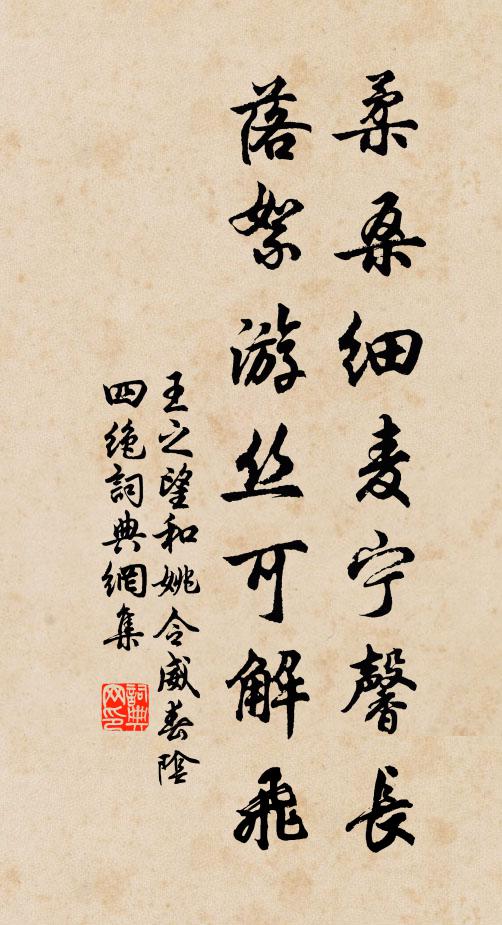 柔桑细麦宁馨长
落絮游丝可解飛
王之望和姚令威春陰
四绝詞典網集
詞典网印